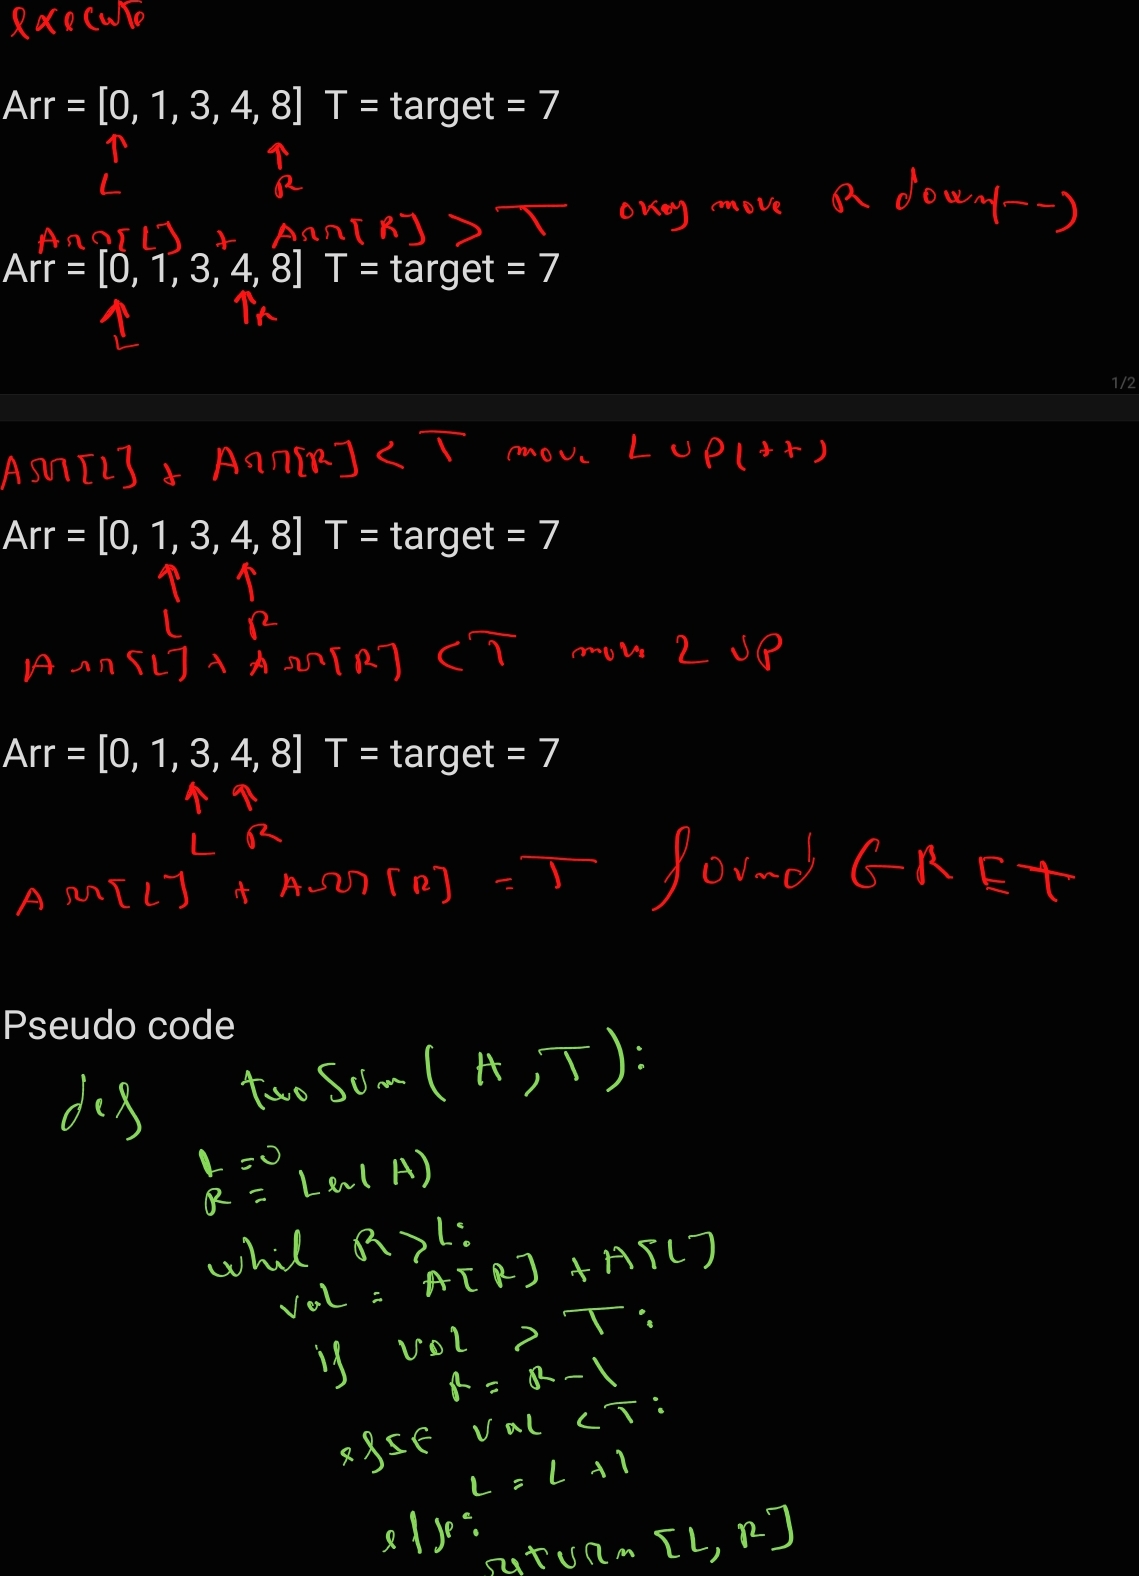 execute
Arr = [0, 1, 3, 4, 8] T = target = 7
L R
Arr[L] + Arr[R] > T okay move R down(--)
Arr = [0, 1, 3, 4, 8] T = target = 7
L R
1/2
Arr[L] + Arr[R] < T move L up(++)
Arr = [0, 1, 3, 4, 8] T = target = 7
L R
Arr[L] + Arr[R] < T move L up
Arr = [0, 1, 3, 4, 8] T = target = 7
L R
Arr[L] + Arr[R] = T found GREt
Pseudo code
def twoSum(A,T):
L =0
R = Len(A)
whil R>L:
val = A[R] + A[L]
if val > T:
R = R-1
val <T:
L = L +1
else:
return [L, R]